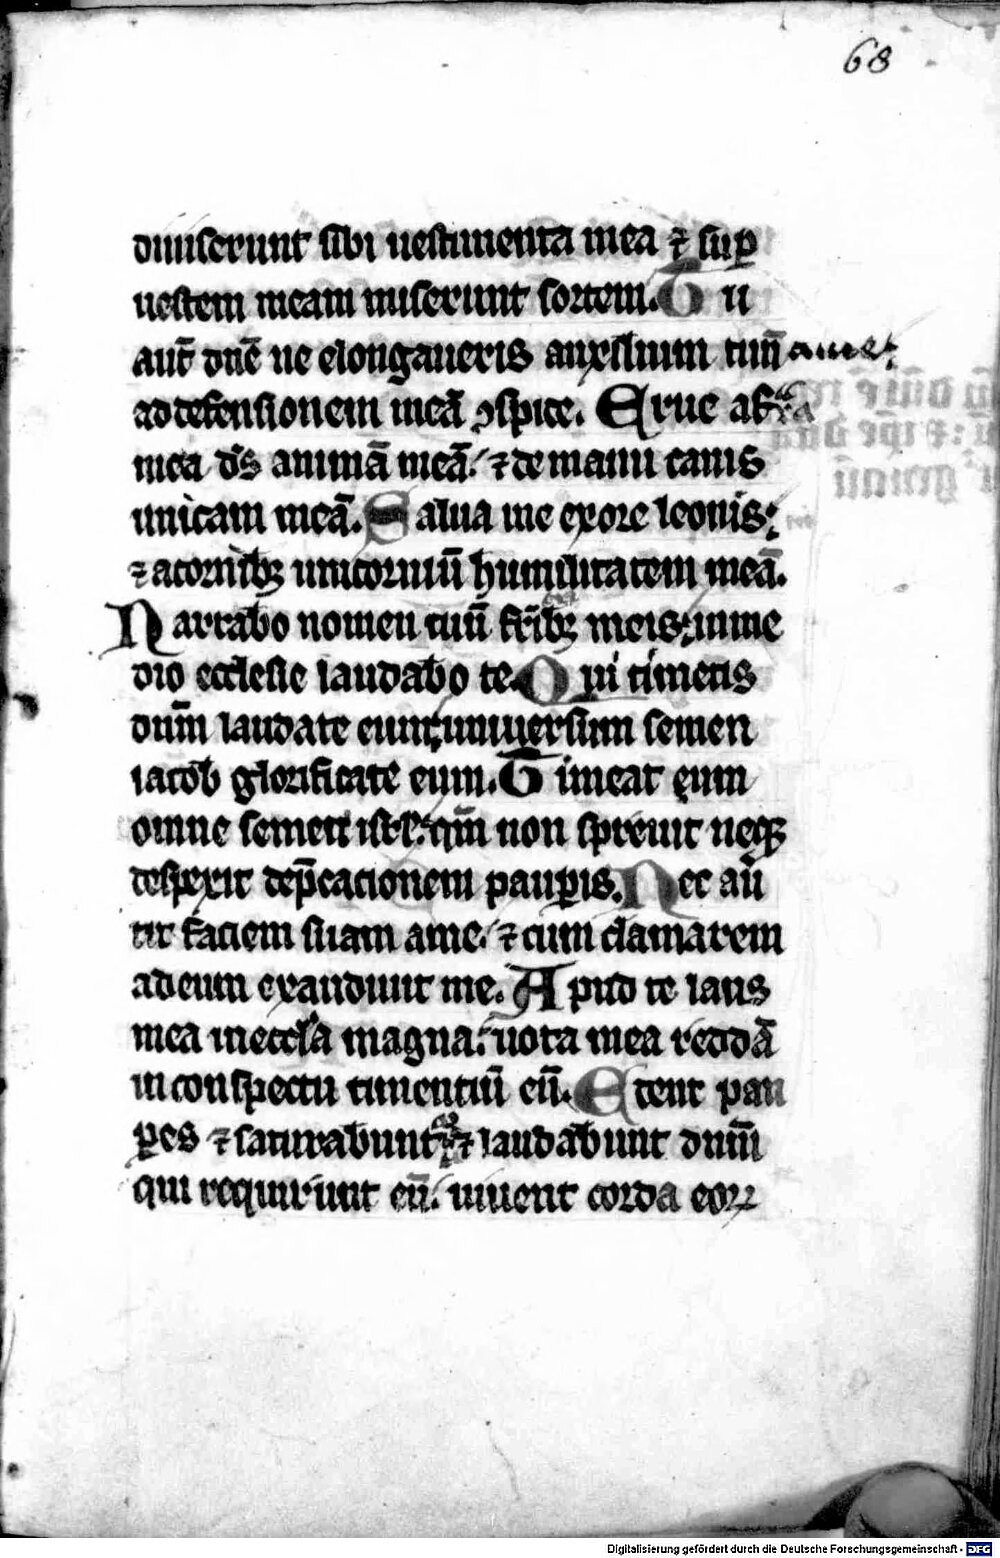 68
diuiserunt sibi uestimenta mea ⁊ sup̱
uestem meam miserunt sortem. Tu
aut̄ dn̄e ne elongaueris auxilium tuū ame:
ad defensionem meā ꝯspice. Erue a fra
mea d̄s animā meā: ⁊ de manu canis
unicam meā. Salua me ex ore leonis:
⁊ a cornibꝫ unicorniū humilitatem meā.
Narrabo nomen tuū fr̄ibꝫ meis: in me
dio ecclesie laudabo te. Qui timetis
dnm̄ laudate eum: uniuersum semen
iacob glorificate eum. Timeat eum
omne semen isrl̄: qm̄ non spreuit neqꝫ
despexit dep̄cacionem paup̱is. Nec auer
tit faciem suam a me: ⁊ cum clamarem
ad eum exaudiuit me. Apud te laus
mea in eccl̄ia magna: uota mea reddā
in conspectu timentiū eū. Edent pau
p̱es ⁊ saturabunt᷑ ⁊ laudabunt dnm̄
qui requirunt eū: uiuent corda eoꝝ
Digitalisierung gefördert durch die Deutsche Forschungsgemeinschaft - DFG